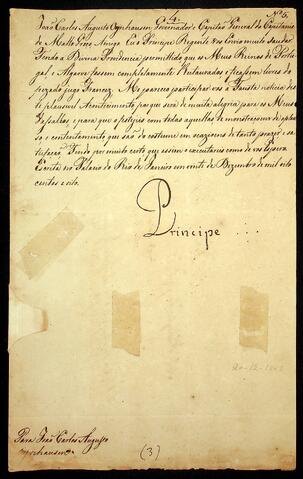 4. Nº 6.
João Carlos Augusto Oeynhausen Governador e Capitão General da Capitania
de Matto Grosso Amigo. Eu o Principe Regente vos Envio muito saudar
Tendo a Divina Providencia permittido que os Meus Reinos de Portu
gal, e Algarves fossem completamente Restaurados, e ficassem livres do
pezado jugo Francez. Me pareceo participar vos a fausta noticia des
te plausivel Acontecimento, por que será de muita alegria para os Meus
Vassallos, e para que o festejeis com todas aquellas demonstraçoens de applau
so, e contentamento que são do costume em occazioens de tanto prazer, e sa
tisfação. Tendo por muito certo que assim o executareis como de vós espero.
Escrita no Palacio do Rio de Janeiro em vinte de Dezembro de mil oito
centos e oito.
Principe ...
20-12-1808
Para João Carlos Augusto
Oeynhausen
(3)